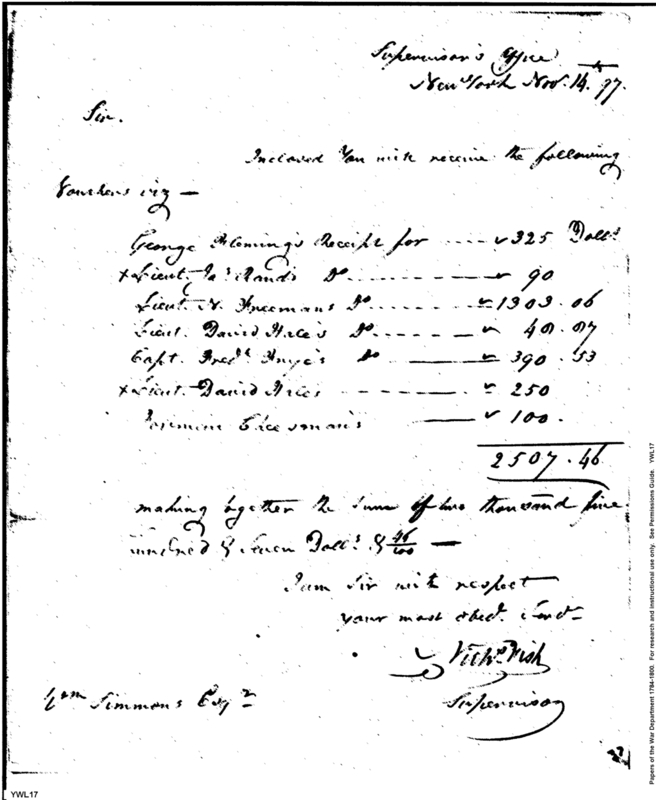 Supervisor's Office
New York Nov. 14th 97.
Sir.
Inclosed You will receive the following
Vouchers viz —
George Fleming's Receipt for ---- 325 Dolls
x Lieut. Ja's Rand's Do ---- 90
Lieut. N. Freemans Do ---- 1303.06
Lieut. David Hale's Do ---- 48.87
Capt. Fred. Frye's Do ---- 390.53
x Lieut. David Hales ---- 250
Cheesman's ---- 100.
2507.46
making together the Sum of two thousand five
hundred & Seven Dolls & 46/100 —
I am Sir with respect
your most obed. Servt
Nichs Fish
Supervisor
Wm Simmons Esqr
YWL17
Papers of the War Department 1784-1800. For research and instructional use only. See Permissions Guide. YWL17